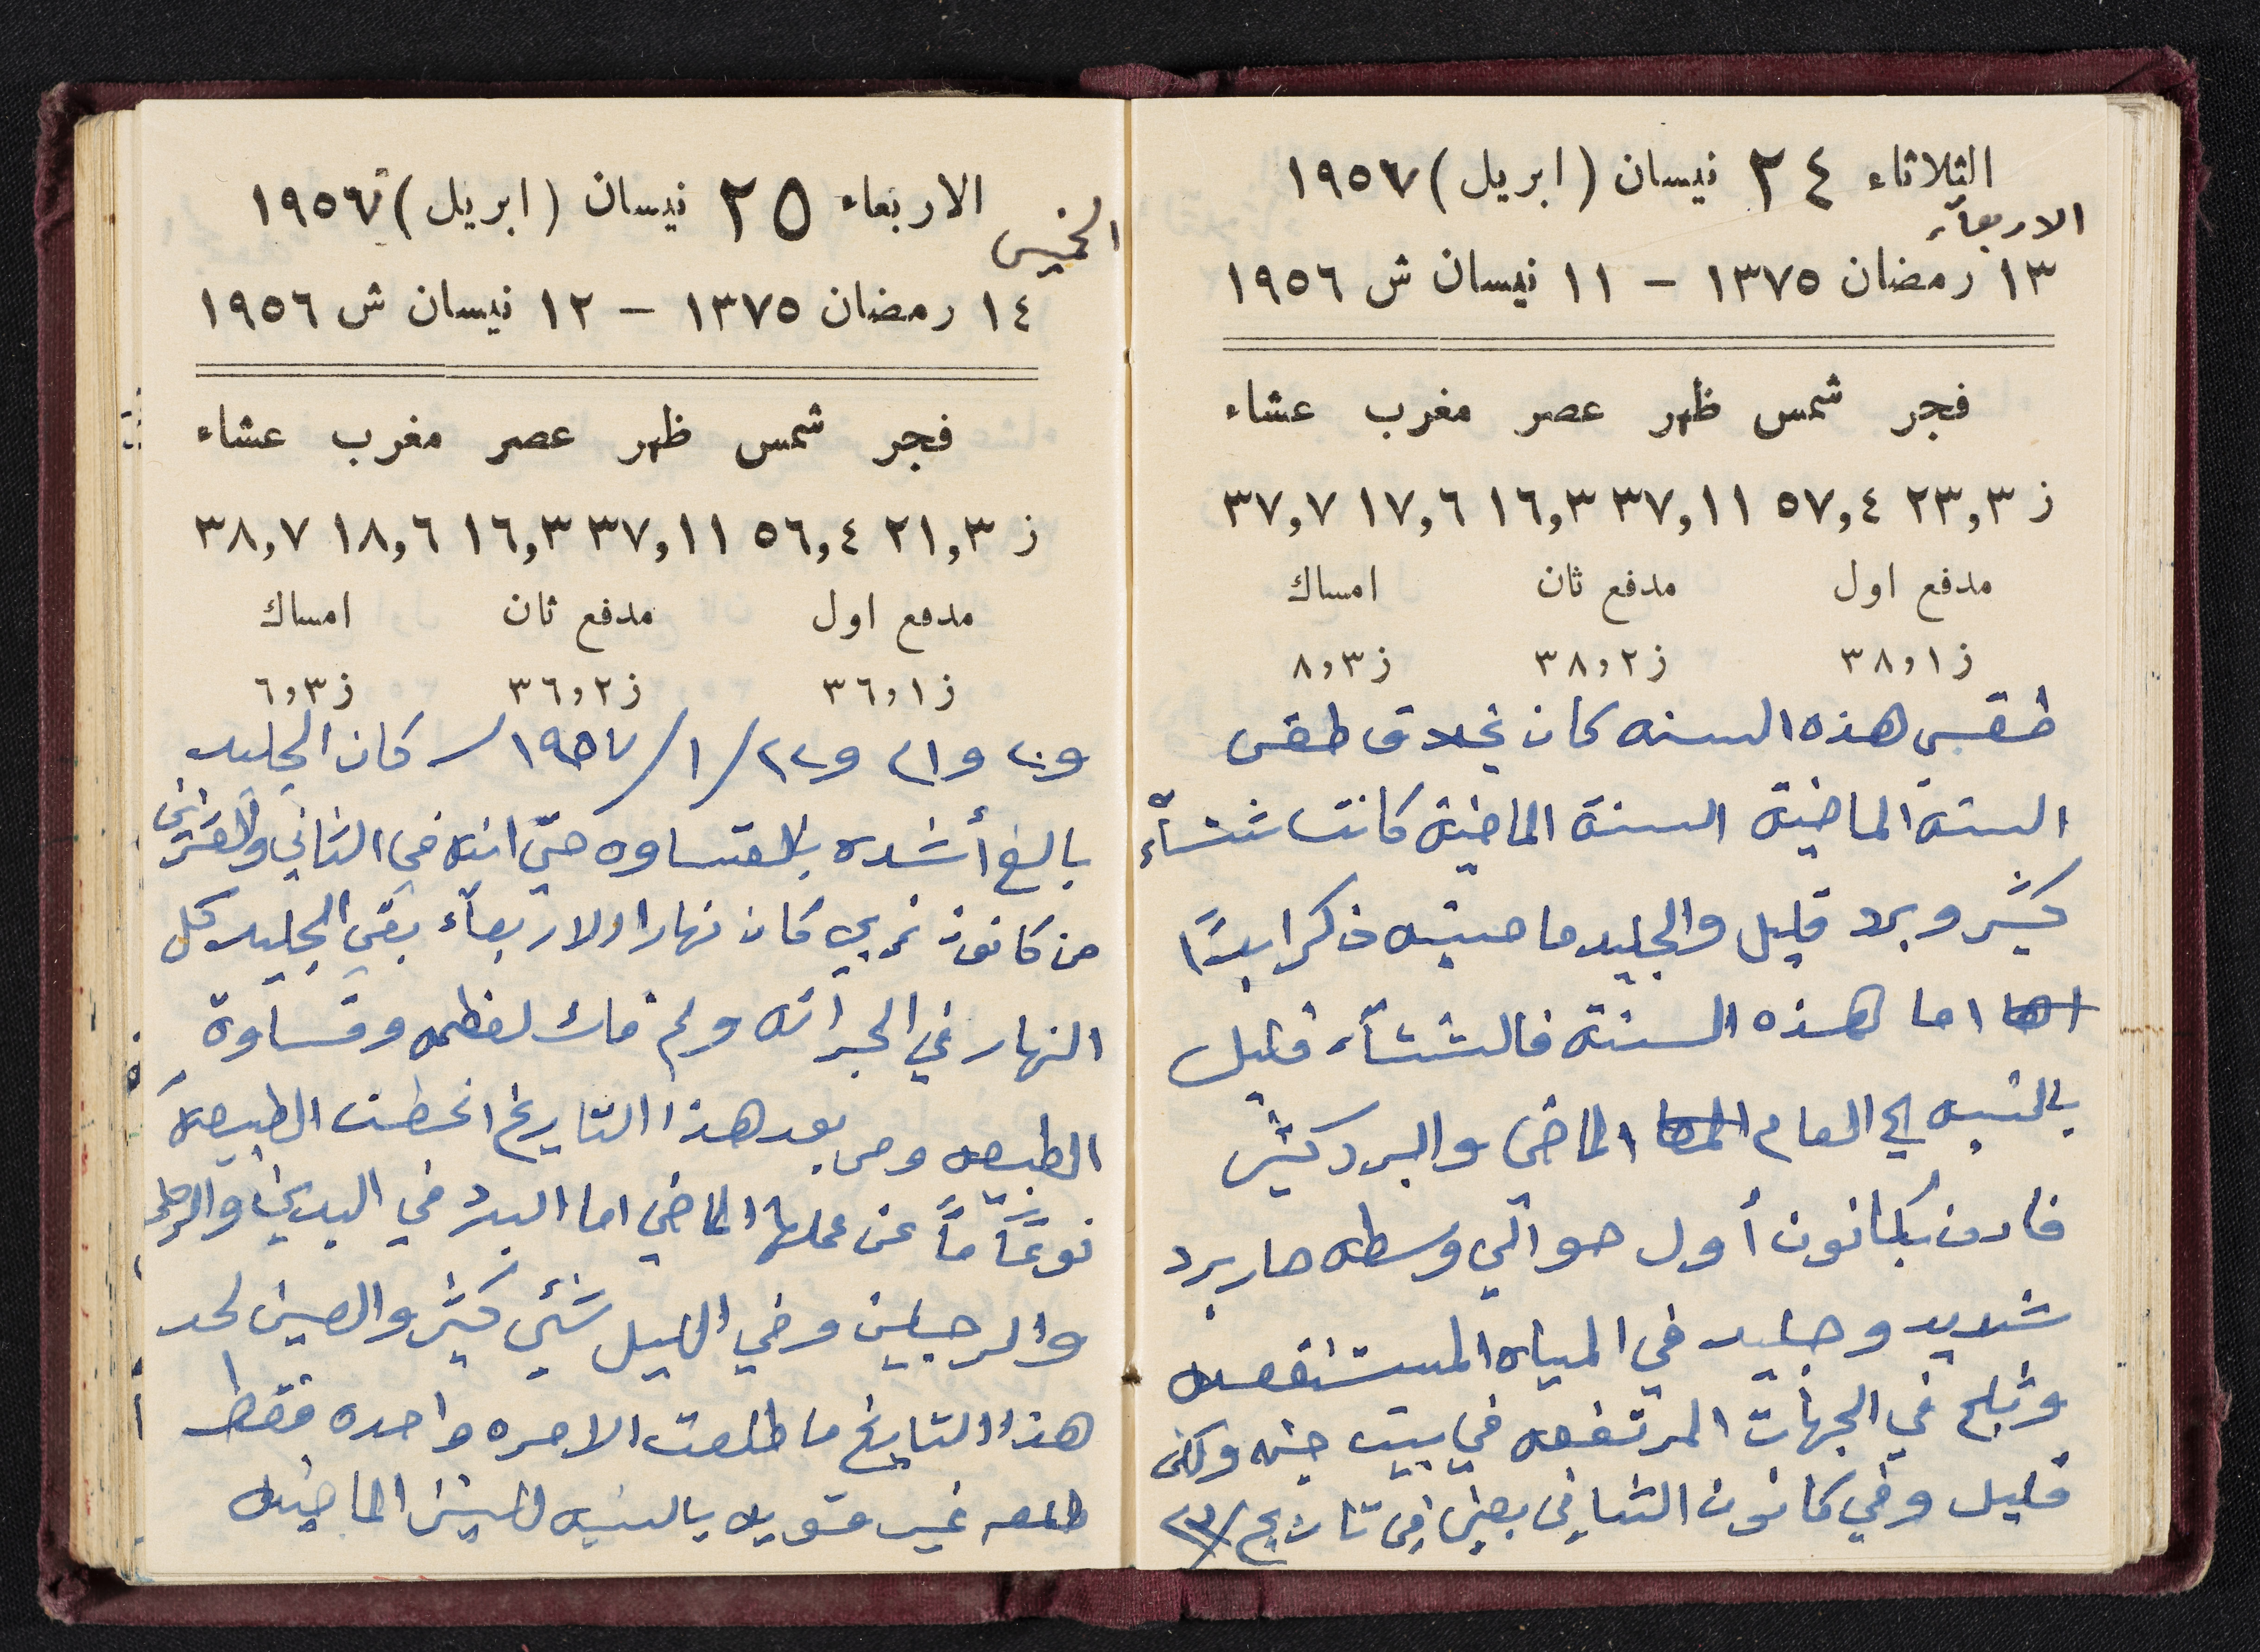 الثلاثاء ٢٤ نيسان (ابريل) ١٩٥٧
الاربعآء
١٣ رمضان ١٣٧٥ – ١١ نيسان ش ١٩٥٦
فجر شمس ظهر عصر مغرب عشاء
ز ٢٣,٣ ٥٧,٤ ٣٧,١١ ١٦,٣ ١٧,٦ ٣٧,٧
مدفع اول مدفع ثان امساك
ز ٣٨,١ ز ٣٨,٢ ز ٨,٣
طقس هذه السنه كان بخلاف طقس
السنة الماضية السنة الماضية كانت شتآء
كثير وبرد قليل والجليد ما صيته ذكر ابدًا
اما هذه السنة فالشتآء قليل
بالنسبه الى العام الماضي والبرد كثير
فاده بكانون أول حوالي وسطه صار برد
شديد وجليد في المياه المستنقعه
وثلج في الجهات المرتفعه في بيت جنه ولكن
قليل وفي كانون الثاني بعض في تاريخ
الاربعاء ٢٥ نيسان (ابريل) ١٩٥٧
الخميس
١٤ رمضان ١٣٧٥ – ١٢ نيسان ش ١٩٥٦
فجر شمس ظهر عصر مغرب عشاء
ز ٢١,٣ ٥٦,٤ ٣٧,١١ ١٦,٣ ١٨,٦ ٣٨,٧
مدفع اول مدفع ثان امساك
ز ٣٦,١ ز ٣٦,٢ ز ٦,٣
و٢٠ و٢١ و٢٢/١/١٩٥٧/ كان الجليد
بالغ أشده بالقساوه حتى انه في الثاني والعشرين
من كانون غربي كان نهارا الاربعآء بقي الجليد كل
النهار في الجرانه ولم فاك لعظمه وقساوة
الطبيعه ومن بعد هذا التاريخ انحطت الطبيعه
نوعًا ماً عن عملها الماضي اما البرد في اليدين
والرجلين وفي الليل شئي كثير والعين لحد
هذا التاريخ ما طلعت الا مره واحده فقط
طلعه غير قويه بالنسبه للسنين الماضيه